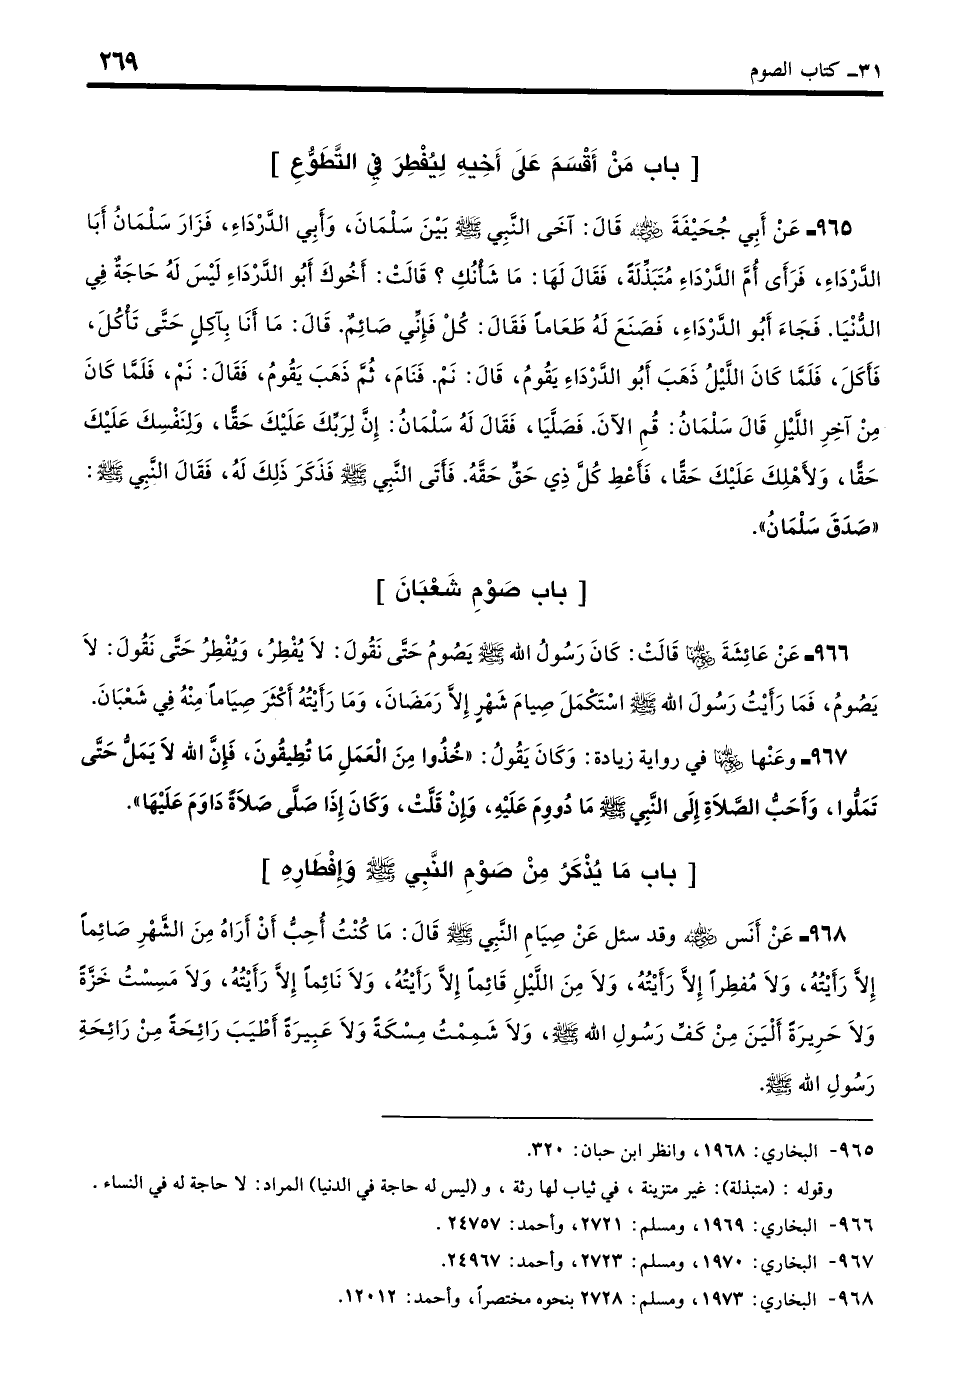 ٣١ـ كتاب الصوم
٢٦٩
[ باب مَنْ أَقْسَمَ عَلَى أَخِيهِ لِيُفْطِرَ فِي التَّطَوُّعِ ]
٩٦٥ـ عَنْ أَبِي جُحَيْفَةَ ﵁ قَالَ: آخَى النَّبِي ﷺ بَيْنَ سَلْمَانَ، وَأَبِي الدَّرْدَاءِ، فَزَارَ سَلْمَانُ أَبَا
الدَّرْدَاءِ، فَرَأَى أُمَّ الدَّرْدَاءِ مُتَبَذِّلَةً، فَقَالَ لَهَا: مَا شَأْنُكِ ؟ قَالَتْ: أَخُوكَ أَبُو الدَّرْدَاءِ لَيْسَ لَهُ حَاجَةٌ فِي
الدُّنْيَا. فَجَاءَ أَبُو الدَّرْدَاءِ، فَصَنَعَ لَهُ طَعَاماً فَقَالَ: كُلْ فَإِنِّي صَائِمٌ. قَالَ: مَا أَنَا بِآكِلٍ حَتَّى تَأْكُلَ،
فَأَكَلَ، فَلَمَّا كَانَ اللَّيْلُ ذَهَبَ أَبُو الدَّرْدَاءِ يَقُومُ، قَالَ: نَمْ. فَنَامَ، ثُمَّ ذَهَبَ يَقُومُ، فَقَالَ: نَمْ، فَلَمَّا كَانَ
مِنْ آخِرِ اللَّيْلِ قَالَ سَلْمَانُ: قُمِ الآنَ. فَصَلَّيَا، فَقَالَ لَهُ سَلْمَانُ: إِنَّ لِرَبِّكَ عَلَيْكَ حَقًّا، وَلِنَفْسِكَ عَلَيْكَ
حَقًّا، وَلأَهْلِكَ عَلَيْكَ حَقًّا، فَأَعْطِ كُلَّ ذِي حَقٍّ حَقَّهُ. فَأَتَى النَّبِي ﷺ فَذَكَرَ ذَلِكَ لَهُ، فَقَالَ النَّبِي ﷺ:
«صَدَقَ سَلْمَانُ».
[ باب صَوْمِ شَعْبَانَ ]
٩٦٦ـ عَنْ عَائِشَةَ ﵂ قَالَتْ: كَانَ رَسُولُ الله ﷺ يَصُومُ حَتَّى نَقُولَ: لاَ يُفْطِرُ، وَيُفْطِرُ حَتَّى نَقُولَ: لاَ
يَصُومُ، فَمَا رَأَيْتُ رَسُولَ الله ﷺ اسْتَكْمَلَ صِيامَ شَهْرٍ إِلاَّ رَمَضَانَ، وَمَا رَأَيْتُهُ أَكْثَرَ صِيَاماً مِنْهُ فِي شَعْبَانَ.
٩٦٧ـ وعَنْها ﵂ في رواية زيادة: وَكَانَ يَقُولُ: «خُذُوا مِنَ الْعَمَلِ مَا تُطِيقُونَ، فَإِنَّ الله لاَ يَمَلُّ حَتَّى
تَمَلُّوا، وَأَحَبُّ الصَّلاَةِ إِلَى النَّبِي ﷺ مَا دُووِمَ عَلَيْهِ، وَإِنْ قَلَّتْ، وَكَانَ إِذَا صَلَّى صَلاَةً دَاوَمَ عَلَيْهَا».
[ باب مَا يُذْكَرُ مِنْ صَوْمِ النَّبِي ﷺ وَإِفْطَارِهِ ]
٩٦٨ـ عَنْ أَنَس ﵁ وقد سئل عَنْ صِيَامِ النَّبِي ﷺ قَالَ: مَا كُنْتُ أُحِبُّ أَنْ أَرَاهُ مِنَ الشَّهْرِ صَائِماً
إِلاَّ رَأَيْتُهُ، وَلاَ مُفطِراً إِلاَّ رَأَيْتُهُ، وَلاَ مِنَ اللَّيْلِ قَائِماً إِلاَّ رَأَيْتُهُ، وَلاَ نَائِماً إِلاَّ رَأَيْتُهُ، وَلاَ مَسِسْتُ خَزَّةً
وَلاَ حَرِيرَةً أَلْيَنَ مِنْ كَفِّ رَسُولِ الله ﷺ، وَلاَ شَمِمْتُ مِسْكَةً وَلاَ عَبِيرَةً أَطْيَبَ رَائِحَةً مِنْ رَائِحَةِ
رَسُولِ الله ﷺ.
٩٦٥- البخاري: ١٩٦٨، وانظر ابن حبان: ٣٢٠.
وقوله : (متبذلة): غير متزينة ، في ثياب لها رثة ، و (ليس له حاجة في الدنيا) المراد: لا حاجة له في النساء .
٩٦٦- البخاري: ١٩٦٩، ومسلم: ٢٧٢١، وأحمد: ٢٤٧٥٧ .
٩٦٧- البخاري: ١٩٧٠، ومسلم: ٢٧٢٣، وأحمد: ٢٤٩٦٧.
٩٦٨- البخاري: ١٩٧٣، ومسلم: ٢٧٢٨ بنحوه مختصراً، وأحمد: ١٢٠١٢.